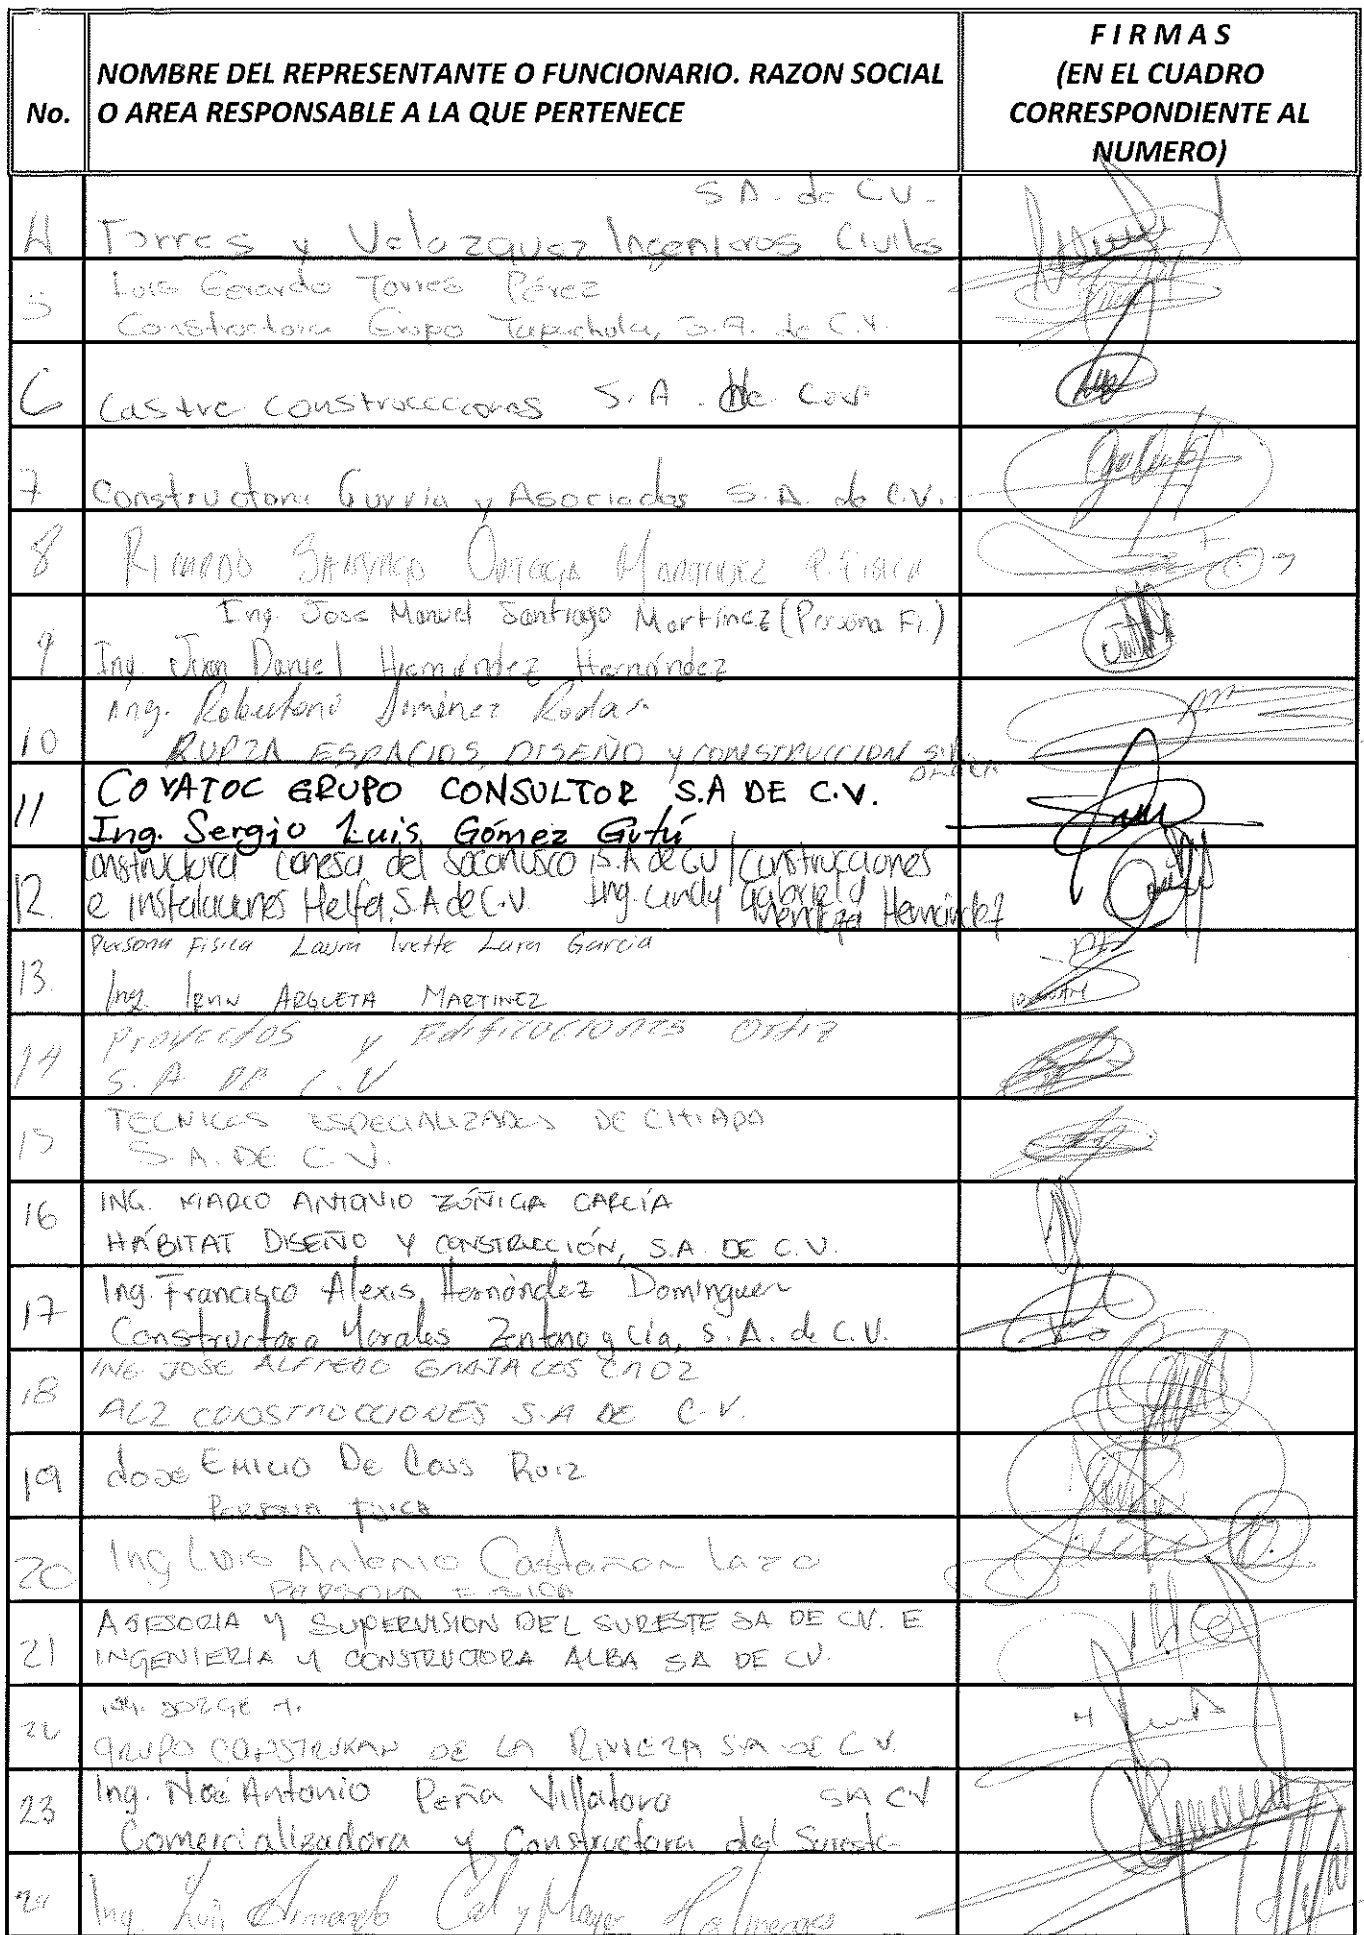 No.
NOMBRE DEL REPRESENTANTE O FUNCIONARIO. RAZON SOCIAL
O AREA RESPONSABLE A LA QUE PERTENECE
FIRMAS
(EN EL CUADRO
CORRESPONDIENTE AL
NUMERO)
S.A. de C.V.
4 Torres y Velazquez Ingenieros Civiles
5 Luis Gerardo Torres Pérez
Constructora Grupo Tapachula, S.A. de C.V.
6 Castre S.A. de C.V.
7 Constructora Gurria y Asociados S.A. de C.V.
8 Ricardo Ortega Martinez P. Fisica
Ing. Jose Manuel Santiago Martínez (Persona Fi.)
9 Ing. Juan Daniel Hernández Hernández
Ing. Jiménez Rodas
10 RUPZA ESPACIOS, DISEÑO y CONSTRUCCION
11 COVATOC GRUPO CONSULTOR S.A DE C.V.
Ing. Sergio Luis Gómez Gutú
Constructora Conesa del Soconusco S.A de CV / Construcciones
12. e instalaciones Helfa, S.A de C.V. Ing. Cindy Gabriela
Mendoza Hernández
Persona Fisica Laura Ivette Lara Garcia
13. Ing. Irvin ARGUETA MARTINEZ
14 Proyectos y Edificaciones Ortiz
S.A DE C.V
15 TECNICOS ESPECIALIZADOS DE CHIAPA
S.A. DE C.V.
16 ING. MARCO ANTONIO ZÚÑIGA GARCÍA
HÁBITAT DISEÑO Y CONSTRUCCIÓN, S.A. DE C.V.
17 Ing. Francisco Alexis Hernández Dominguez
Constructora Morales Zenteno y Cía, S.A. de C.V.
18 ING JOSE ALFREDO CRUZ
CONSTRUCCIONES S.A DE C.V.
19 Jose Emilio De Coss Ruiz
PERSONA FISICA
20 Ing Luis Antonio Castañon Lazo
PERSONA FISICA
21 ASESORIA Y SUPERVISION DEL SURESTE SA DE CV. E
INGENIERIA Y CONSTRUCTORA ALBA SA DE CV.
22 ING. JORGE A.
GRUPO CONSTRUKAN DE LA RIVIERA SA DE C.V.
23 Ing. Noé Antonio Peña Villatoro SA CV
Comercializadora y Constructora del Sureste
24 Ing. Luis Armando Cal y Mayor